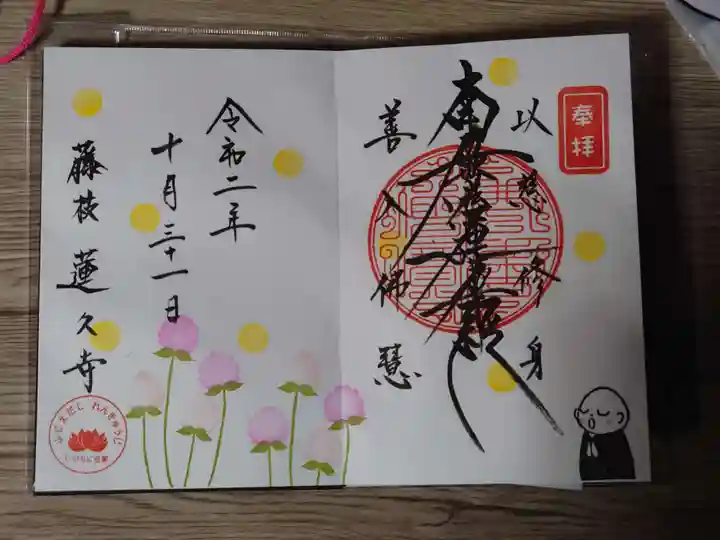 奉拝
以慈修身
南無妙法蓮華経
善入佛慧
令和二年
十月三十一日
藤枝 蓮久寺
ふじえだし れんきゅうじ
いのちに合掌